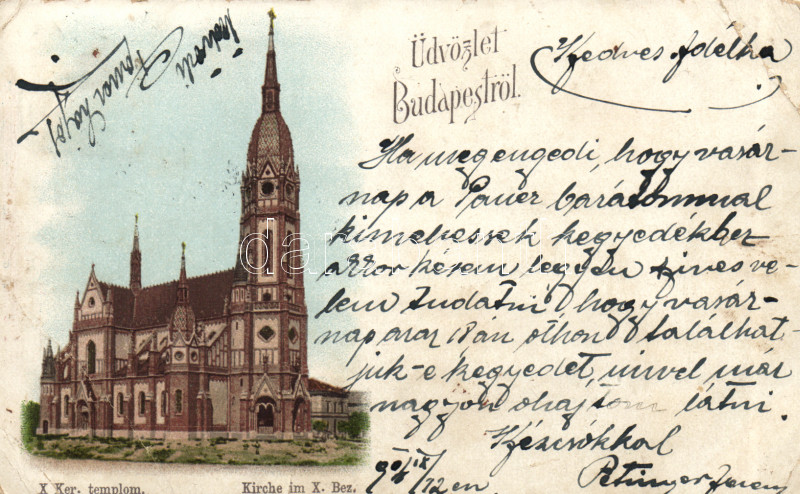 Üdvözlet
Budapestről.
Kedves Adélka
Ha megengedi, hogy vasár-
nap a Pauer barátommal
kimehessek kegyedékhez
akkor kérem legyen szives ve-
lem tudatni hogy vasár-
nap azaz 18án othon találhat-
juk-e kegyedet, mivel már
nagyon ohajtom látni.
Kézcsókkal
12 en
X Ker. templom.
Kirche im X. Bez.
darabanth.com